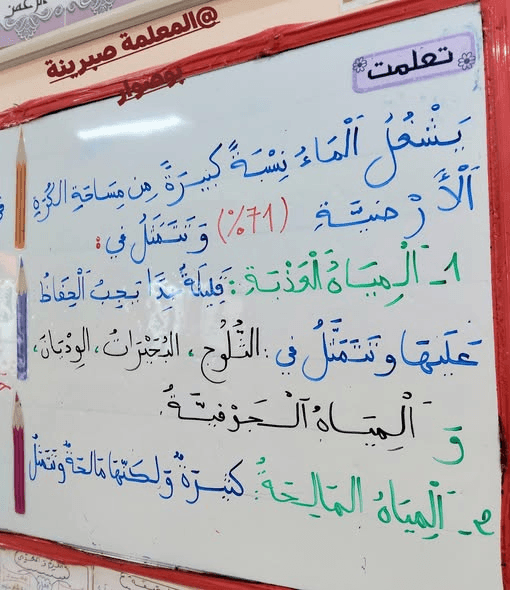 @المعلمة صبرينة
بوضوار
تعلمت
يَشْغُلُ اَلْمَاءُ نِسْبَةً كَبِيرَةً مِن مِسَاحَةِ الكُرَةِ
اَلْأَرْضِيَّةِ (71%) وَتَتَمَثَّلُ في :
1- اَلْمِيَاهُ اَلْعَذْبَةُ : قَلِيلَةٌ جِدًّا يَجِبُ اَلْحِفَاظُ
عَلَيْهَا وتَتَمَثَّلُ في : الثُّلُوج ، البُحَيْرَاتُ ، الوِدْيَانَ،
وَ اَلْمِيَاهُ اَلْجَوْفِيَّةُ.
2- اَلْمِيَاهُ المَالِحَةُ : كَثِيرَةٌ وَلكنّهَا مَالحَةٌ وتَتَمثَّلُ